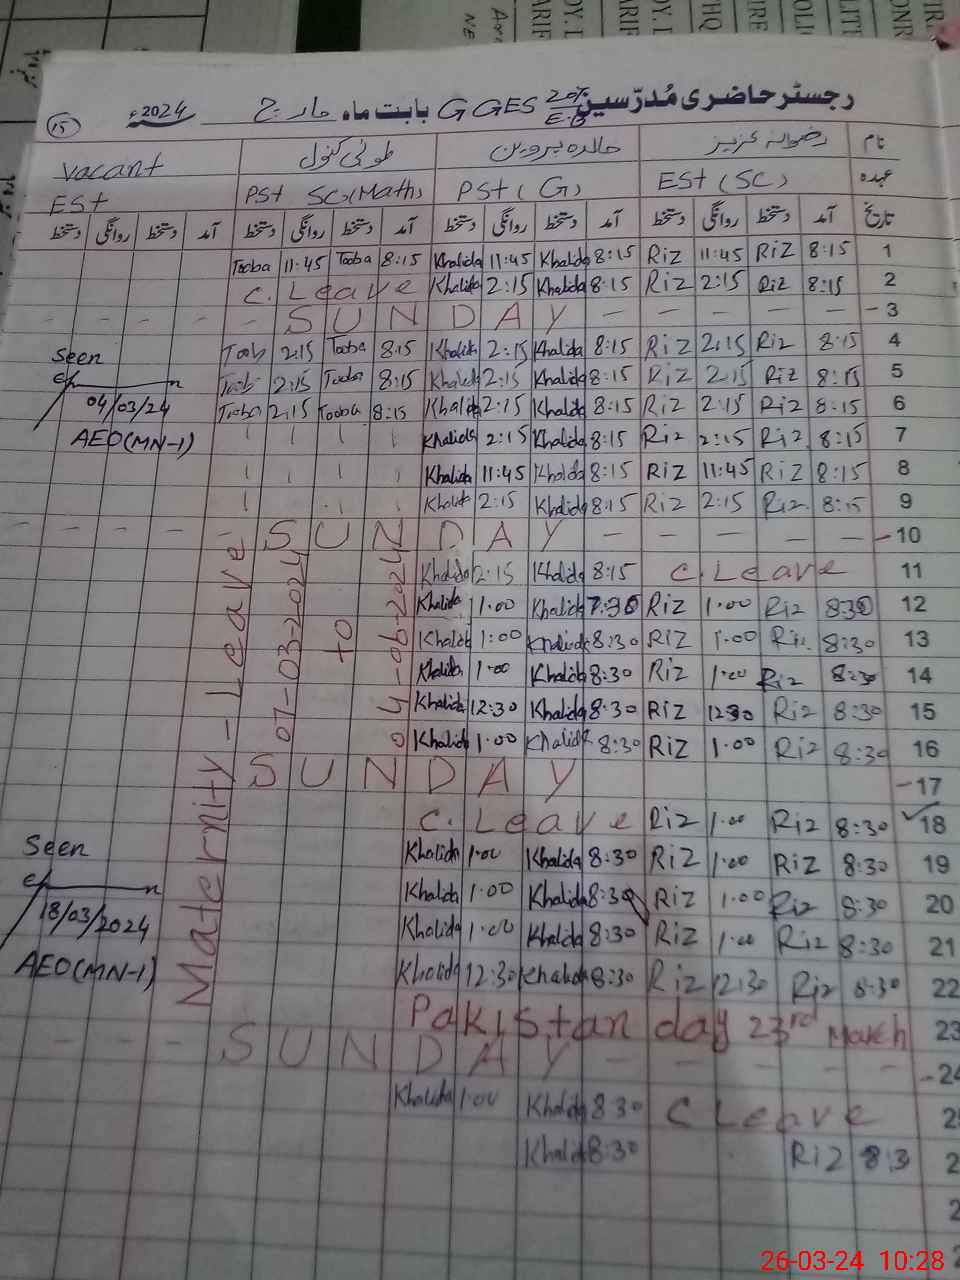 رجسٹر حاضری مُدرّسین GGES 20% E.B بابت ماہ مارچ 2024ء
15
نام رضوانہ عزیز خالدہ پروین طوبیٰ کنول Vacant
عہدہ ESt (SC) PSt (G) PSt SC.(Math) ESt
تاریخ آمد دستخط روانگی دستخط آمد دستخط روانگی دستخط آمد دستخط روانگی دستخط آمد دستخط روانگی دستخط
Tooba 11:45 Tooba 8:15 Khalida 11:45 Khalida 8:15 Riz 11:45 Riz 8:15 1
C. Leave Khalida 2:15 Khalida 8:15 Riz 2:15 Riz 8:15 2
SUNDAY - 3
Toob 2:15 Tooba 8:15 Khalida 2:15 Khalida 8:15 Riz 2:15 Riz 8:15 4
Toob 2:15 Tooba 8:15 Khalida 2:15 Khalida 8:15 Riz 2:15 Riz 8:15 5
Tooba 2:15 Tooba 8:15 Khalida 2:15 Khalida 8:15 Riz 2:15 Riz 8:15 6
Khalida 2:15 Khalida 8:15 Riz 2:15 Riz 8:15 7
Khalida 11:45 Khalida 8:15 Riz 11:45 Riz 8:15 8
Khalida 2:15 Khalida 8:15 Riz 2:15 Riz 8:15 9
SUNDAY - 10
Khalida 2:15 Khalida 8:15 C. Leave 11
Khalida 1:00 Khalida 7:30 Riz 1:00 Riz 8:30 12
Khalida 1:00 Khalida 8:30 Riz 1:00 Riz 8:30 13
Khalida 1:00 Khalida 8:30 Riz 1:00 Riz 8:30 14
Khalida 12:30 Khalida 8:30 Riz 12:30 Riz 8:30 15
Khalida 1:00 Khalida 8:30 Riz 1:00 Riz 8:30 16
SUNDAY - 17
C. Leave Riz 1:00 Riz 8:30 18
Khalida 1:00 Khalida 8:30 Riz 1:00 Riz 8:30 19
Khalida 1:00 Khalida 8:30 Riz 1:00 Riz 8:30 20
Khalida 1:00 Khalida 8:30 Riz 1:00 Riz 8:30 21
Khalida 12:30 Khalida 8:30 Riz 12:30 Riz 8:30 22
Pakistan day 23rd March 23
SUNDAY - 24
Khalida 1:00 Khalida 8:30 C Leave
Khalida 8:30 Riz 8:3
Seen
04/03/24
AEO(MN-1)
Seen
18/03/2024
AEO(MN-1)
Maternity - Leave
07-03-2024
to
04-06-2024
26-03-24 10:28